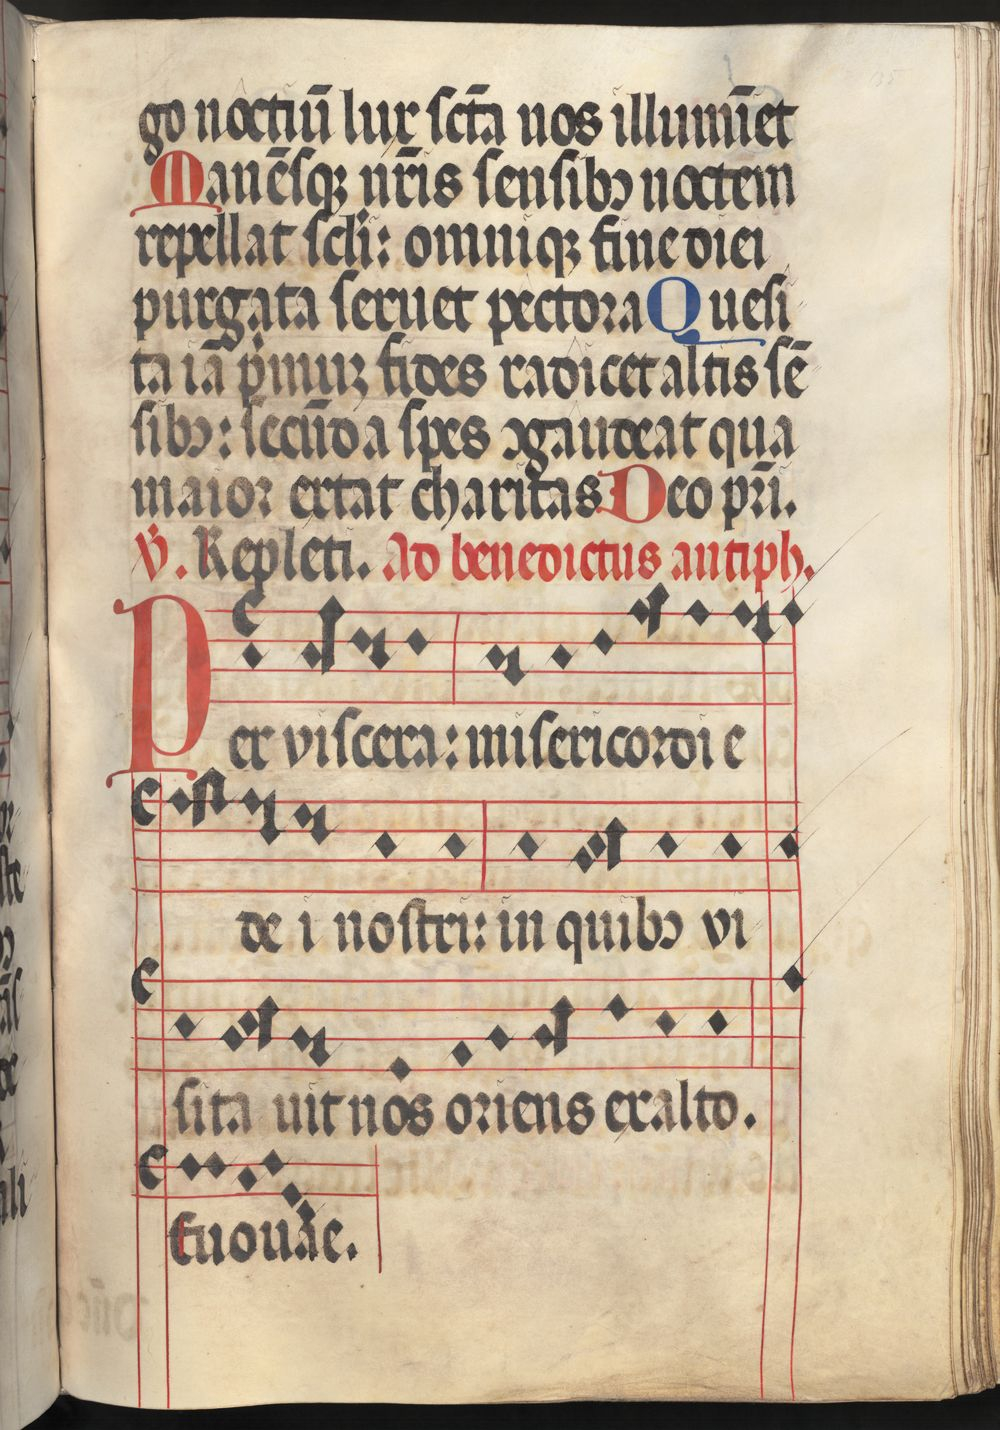 go noctiū lux sctā nos illumīet
Manēsqꝫ nr̄is sensibꝯ noctem
repellat scłi: omniqꝫ fine diei
purgata seruet pectora Quesi
ta iā pͥmuꝫ fides radicet altis sē
sibꝯ: secūda spes ꝯgaudeat qua
maior extat charitas Deo pr̄i.
℣. Repleti. Ad benedictus antiph.
Per viscera: misericordi e
de i nostri: in quibꝯ vi
sita uit nos oriens exalto.
Euouae.